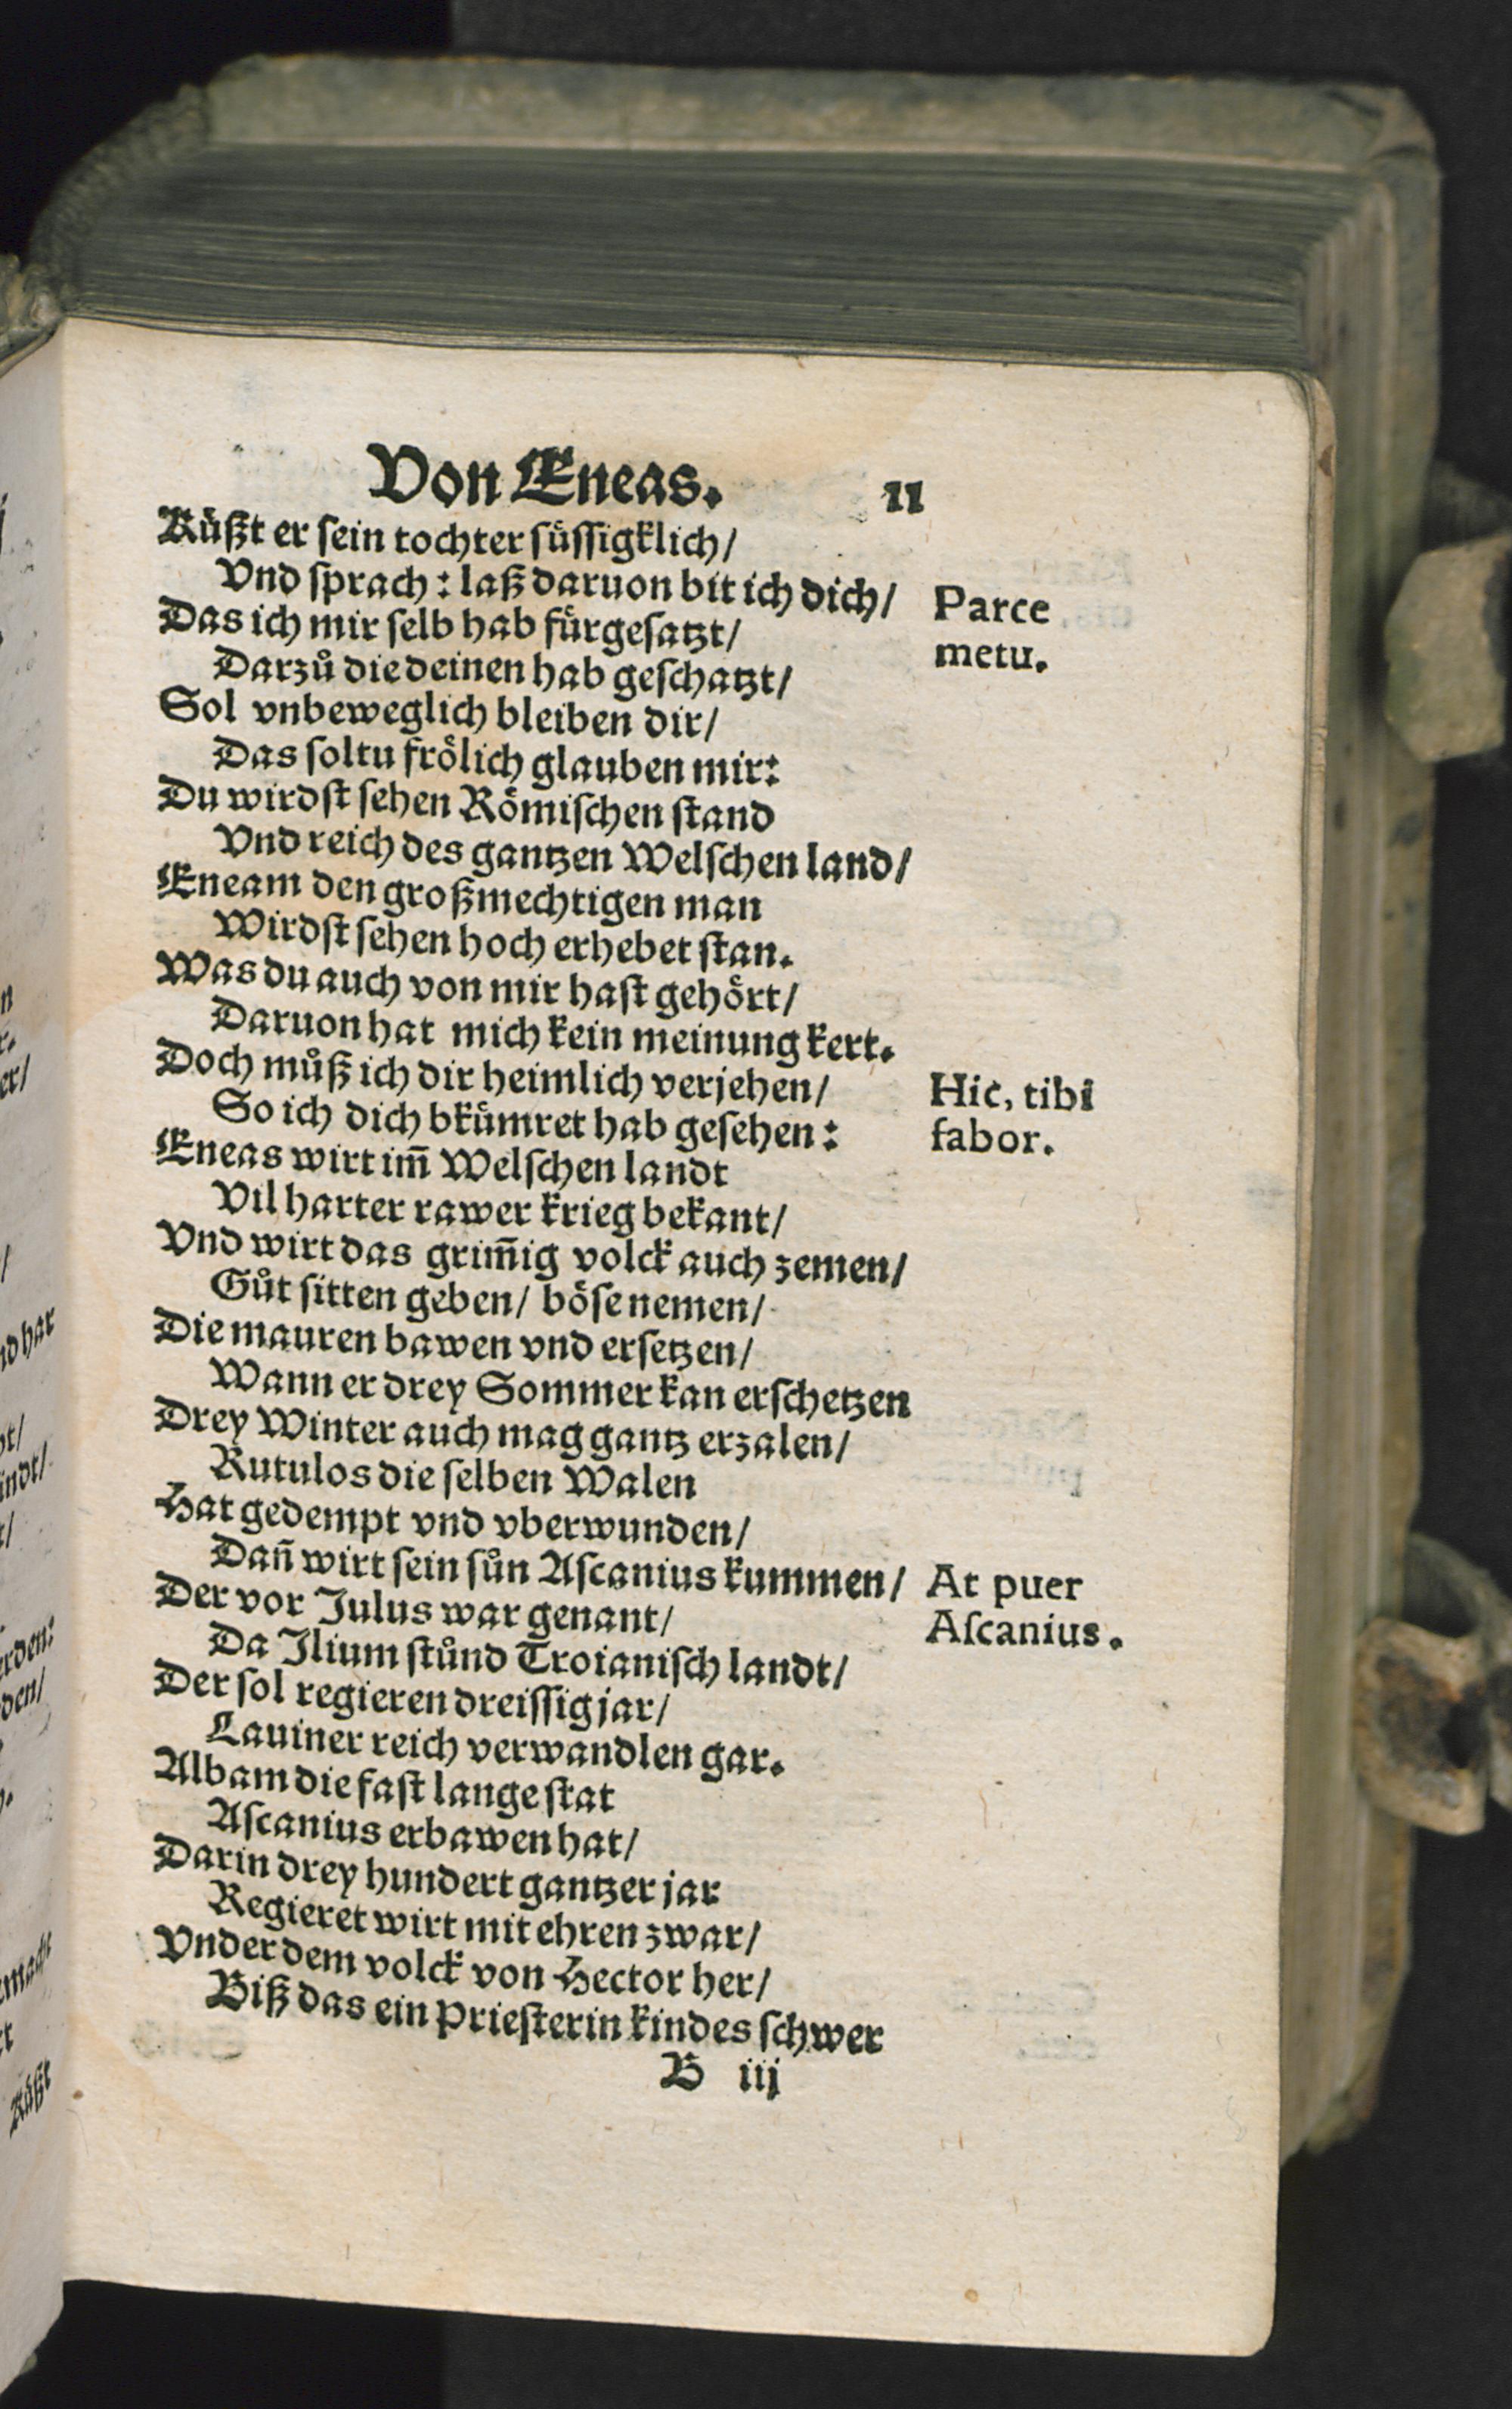 Von Eneas. 11
Küßt er sein tochter süssigklich/
Vnd sprach: laß daruon bit ich dich/
Das ich mir selb hab fürgesatzt/
Darzů die deinen hab geschatzt/
Sol vnbeweglich bleiben dir/
Das soltu frölich glauben mir:
Du wirdst sehen Römischen stand
Vnd reich des gantzen Welschen land/
Eneam den großmechtigen man
Wirdst sehen hoch erhebet stan.
Was du auch von mir hast gehört/
Daruon hat mich kein meinung kert.
Doch můß ich dir heimlich verjehen/
So ich dich bkümret hab gesehen:
Eneas wirt im̄ Welschen landt
Vil harter rawer krieg bekant/
Vnd wirt das grim̄ig volck auch zemen/
Gůt sitten geben/ böse nemen/
Die mauren bawen vnd ersetzen/
Wann er drey Sommer kan erschetzen
Drey Winter auch mag gantz erzalen/
Rutulos die selben Walen
Hat gedempt vnd vberwunden/
Dañ wirt sein sůn Ascanius kummen/
Der vor Julus war genant/
Da Ilium stůnd Troianisch landt/
Der sol regieren dreissig jar/
Lauiner reich verwandlen gar.
Albam die fast lange stat
Ascanius erbawen hat/
Darin drey hundert gantzer jar
Regieret wirt mit ehren zwar/
Vnder dem volck von Hector her/
Biß das ein Priesterin kindes schwer
B iij
Parce
metu.
Hic, tibi
fabor.
At puer
Ascanius.